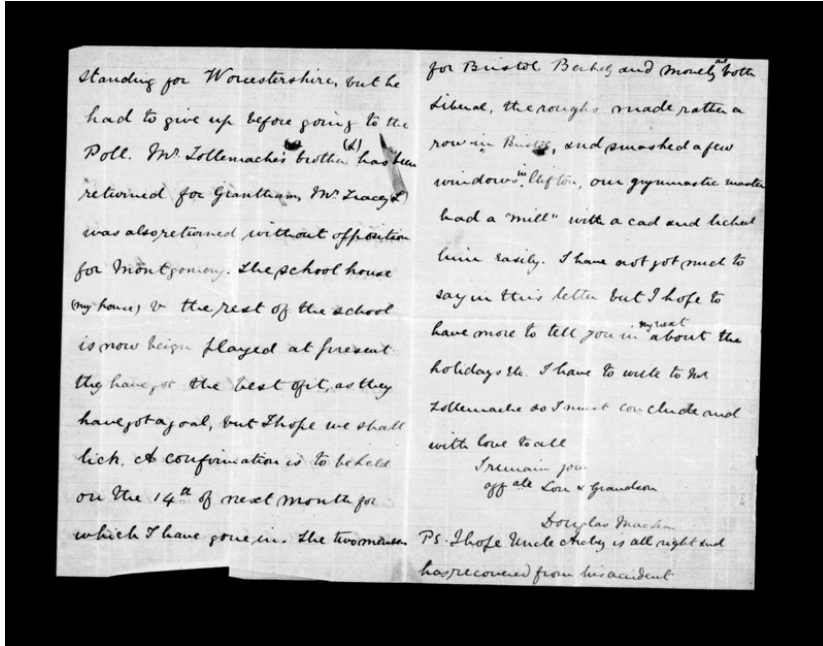 standing for Worcestershire, but he
had to give up before going to the
Poll. Mr. Tollemache's brother (L) has been
returned for Grantham, Mr. Tracey (L)
was also returned without opposition
for Montgomery. The school house
(my house) v the rest of the school
is now being played at present
they have got the best of it, as they
have got a goal, but I hope we shall
lick. A confirmation is to be held
on the 14th of next month for
which I have gone in. The two members
for Bristol Berkely and Morely are both
Liberal, the roughs made rather a
row in Bristol, and smashed a few
windows in Clifton, our gymnastic master
had a "mill" with a cad and licked
him easily. I have not got much to
say in this letter but I hope to
have more to tell you in my next about the
holidays etc. I have to write to Mr
Tollemache so I must conclude and
with love to all
I remain your
aff ate Son & Grandson
Douglas Maclean
PS. I hope Uncle Archy is all right and
has recovered from his accident